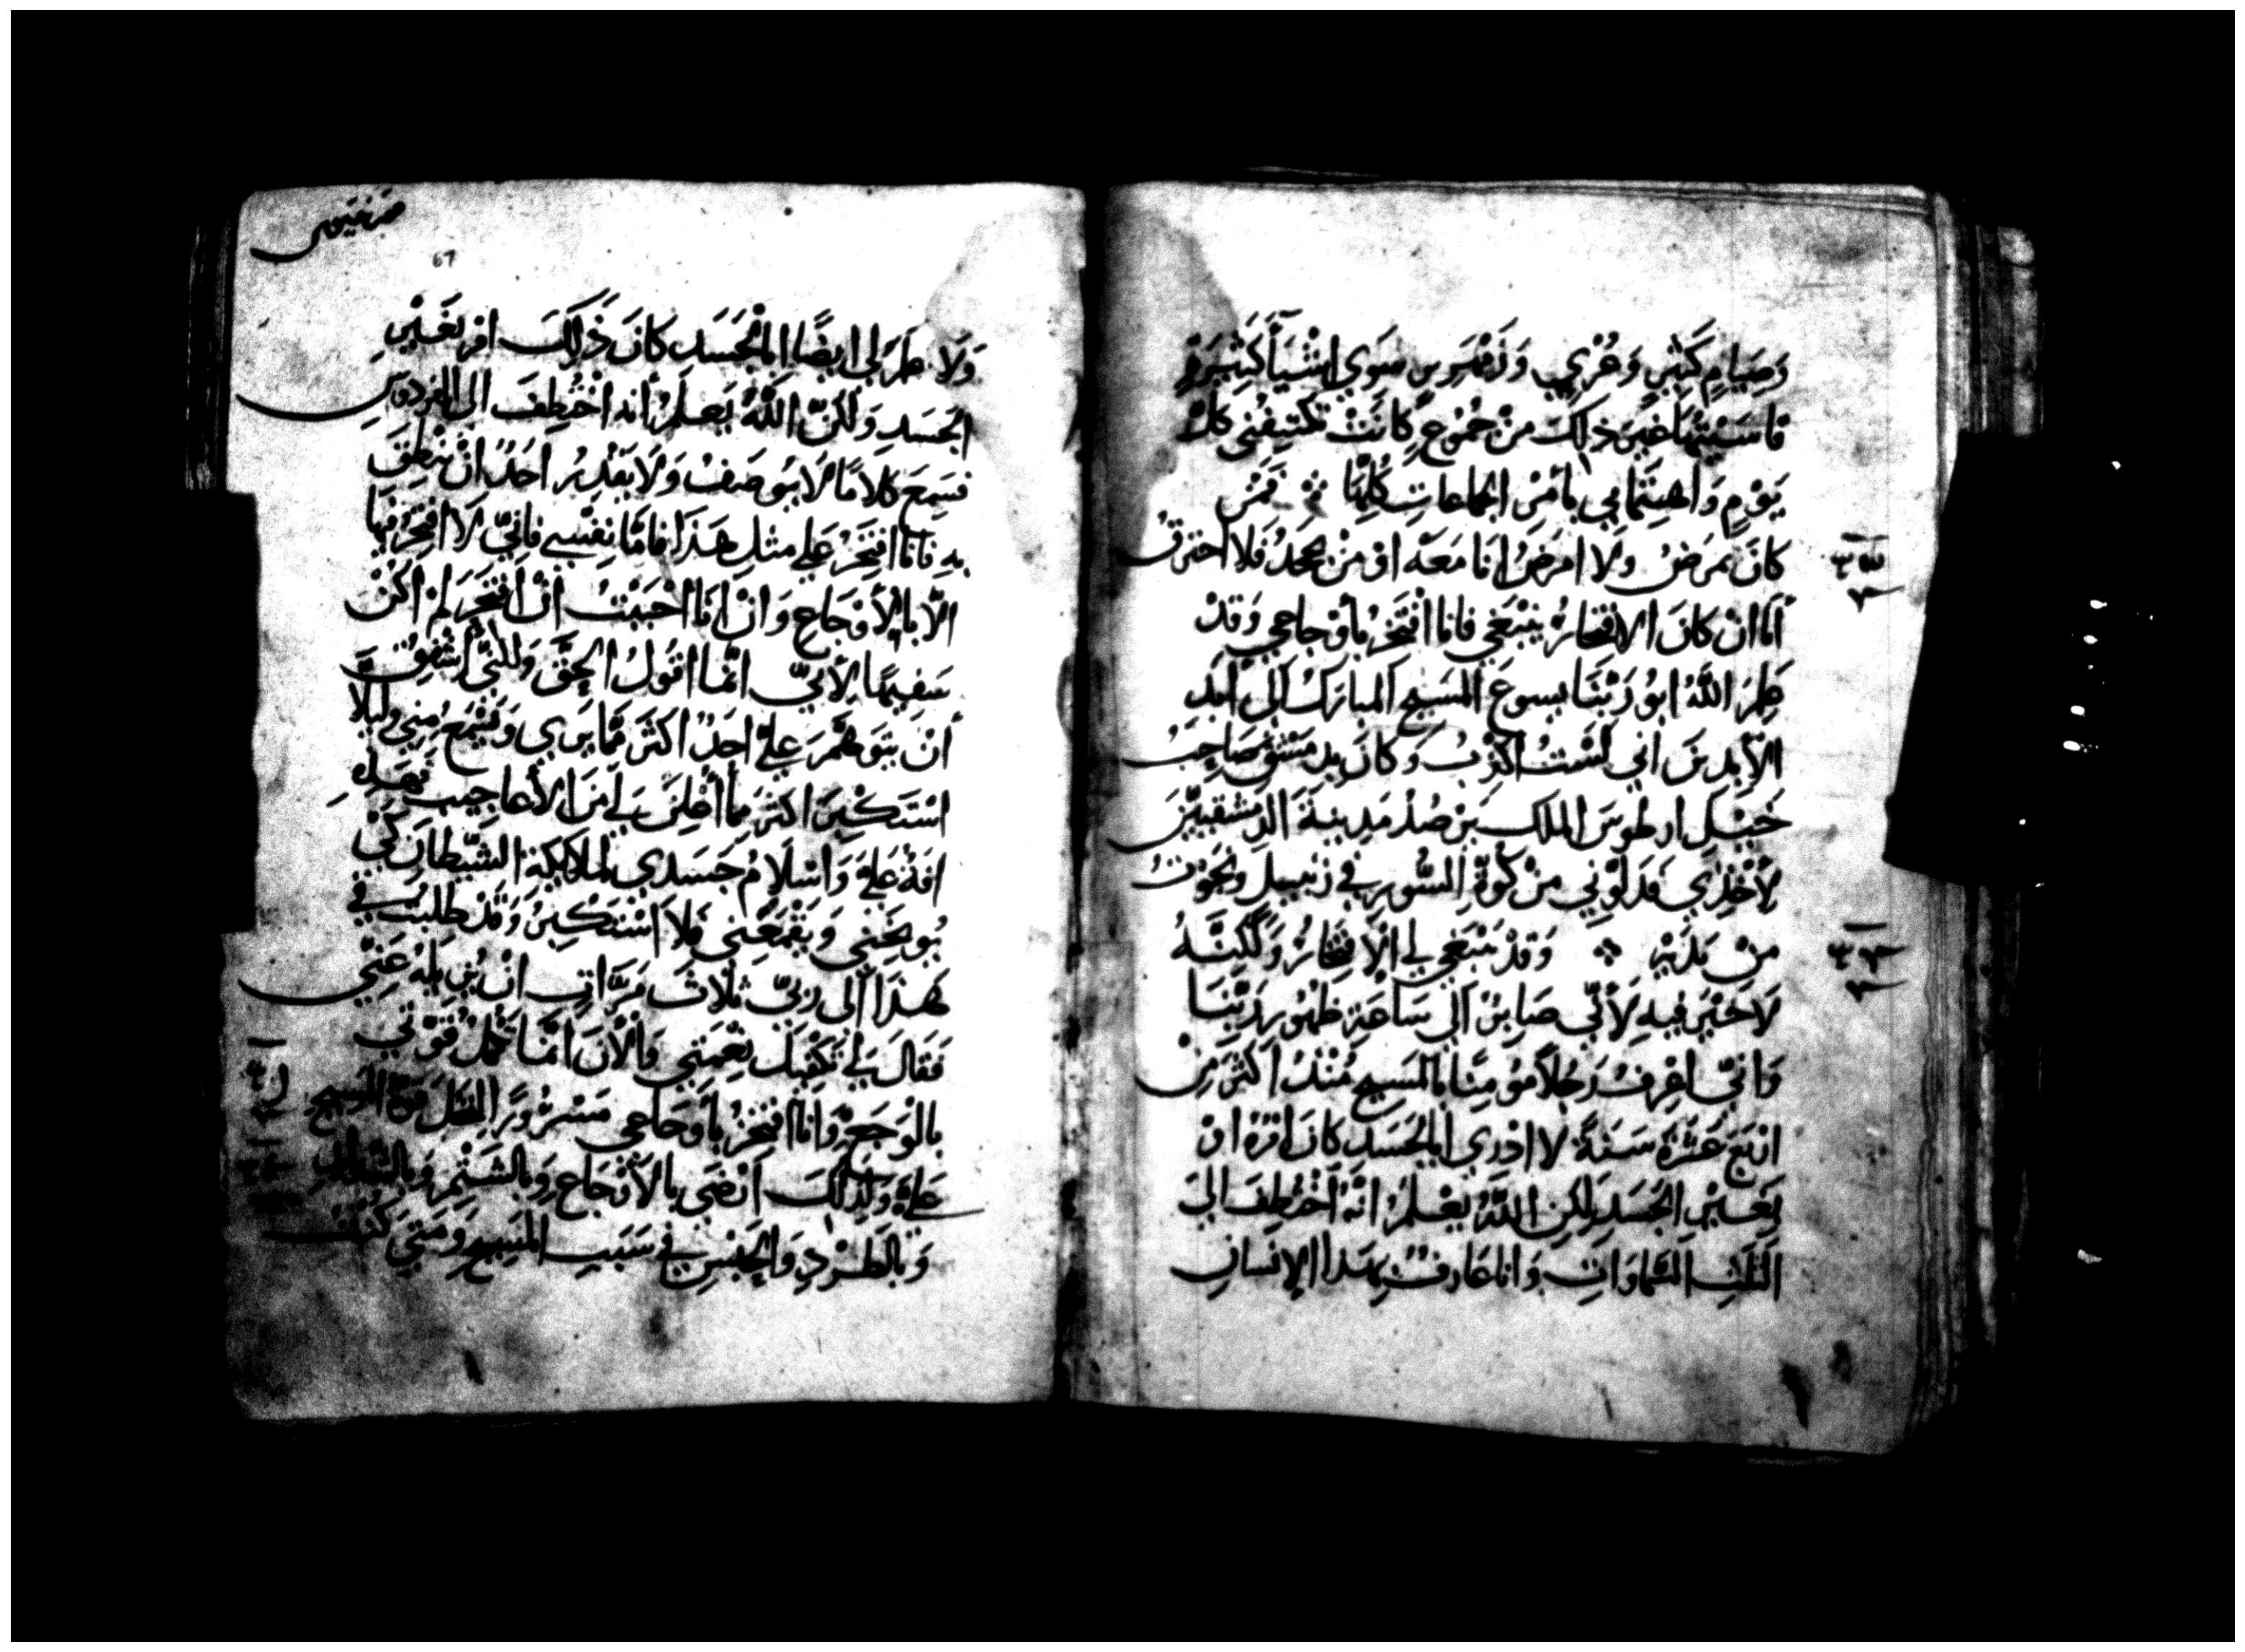 وَصِيَامٍ كَثِيْرٍ وَعُرْيٍ سِوَي اشْيَآءَ كَثِيْرَةٍ
قاسَيْتُهَا غَيْرَ ذلِكَ مِنْ جُمُوْعٍ كانَتْ تكتنِفُنى كلَّ
يَوْمٍ وَاهتِمَامِي بامْرِ الجَماعاتِ كُلِّهَا فَمَنْ
كانَ يَمرَضُ ولَا امرَضُ انَا مَعَهْ اوْ مَنْ يَجحَدُ فَلا احترِقُ
أمّا انْ كانَ الافتخارُ يَنبَغي فانا افْتَخِرُ باوْجاعِي وَقدْ
عَلِمَ اللَّهُ ابُو رَبّنَا يسوعَ المَسيحِ المبارَكُ الَى ابَدِ
الآبدِينَ اني لسْتُ اكذِبُ وَكانَ بدِمَشقَ صَاحِبُ
خَيْلِ ارطوسَ الملك يَرْصُدُ مَدِينةَ الدِمَشقيّينَ
لأخْذِي فدَلّوْني مِنْ كُوَّةِ السُّورِ في زنبيلٍ ونَجَوْتُ
مِنْ يَدَيْهِ وَقدْ يَنْبَغي لي الافْتِخارُ وَلَكِنَّهُ
لَا خَيْرَ فيهِ لِأنّي صَابِرٌ الَى سَاعَةِ ظهُورِ رَبّنَا
وَانّي اعْرِفُ رَجُلاً مُؤْمِنًا بالمَسيحِ مُنْذُ اكْثَرَ مِنْ
ارْبَعَ عَشْرَةَ سَنَةً لا ادْرِي ابالجَسَدِ كانَ امْرُهُ اوْ
بِغَيْرِ الجَسَدِ ولكِنِ اللَّهُ يَعْلَمُ انَّهُ اخْتُطِفَ الى
الثالثةِ السَّماوَاتِ وَانا عَارِفٌ بِهَذا الإنسانِ
67
وَلَا عِلمَ لي ايضًا ابالجَسَدِ كانَ ذَلِكَ اوْ بغَيْرِ
الجَسَدِ وَلكِنّ اللَّهُ يَعلَمُ أنه اخْتُطِفَ الى الفِردَوسِ
فسَمِعَ كلامًا لا يُوصَفُ وَلَا يَقْدِرُ احَدٌ انْ يَنْطِقَ
بِهِ فانا افتَخِرُ علي مثلِ هَذَا فامّا نفْسي فانّي لَا افتَخِرُ فيها
الّا بالأوْجَاعِ وَانْ انَا احْبَبْتُ انْ افتَخِرَ لمْ اكُنْ
سَفيهًا لأنّي انّما اقولُ الحقَّ وَلكنّي اشْفِقُ
أنْ يَتَوَهَّمَ عليَّ احَدٌ اكثرَ ممّا يَرَي وَيَسْمَعُ مِني وليلا
اسْتَكْبِرَ اكثرَ بما اعْلِنَ لي منَ الأعاجِيبِ
افةٌ عليَّ وَاسْلَامُ جَسَدي لملايكة الشّيْطانِ كَيْ
يُوَبِّخَنِي وَيَقْمَعَني فلَا اسْتَكبِرُ وَقدْ طلبتُ في
هَذَا الى ربّي ثلَاثَ مَرّاتٍ انْ يُزِيلَهُ عَنّي
فَقَالَ لي تكْفِيكَ نِعْمَتي وَالْآنَ انّما تَكْمُلُ قُوّتي
بالوَجَعِ وَانا افتخِرُ باوجَاعِي مَسْرُورًا لتحلَّ قوةُ المسيحِ
عليَّ وَلِذلِكَ ارْضَى بالأوْجَاعِ وَبالشَتْمِ وَبالشدايدِ
وَبالطرْدِ وَالحبْسِ في سَبَبِ المَسيحِ وَمَتى كُنْتُ